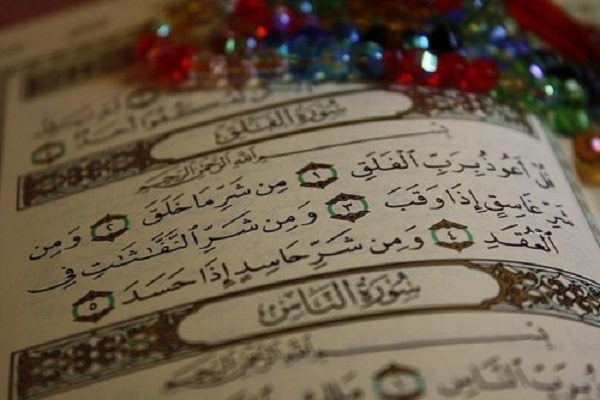 كُفُوًا أَحَدٌ
سُورَةُ الْفَلَقِ
بِسْمِ اللَّهِ الرَّحْمَٰنِ الرَّحِيمِ
قُلْ أَعُوذُ بِرَبِّ الْفَلَقِ ١ مِن شَرِّ مَا خَلَقَ ٢ وَمِن
شَرِّ غَاسِقٍ إِذَا وَقَبَ ٣ وَمِن شَرِّ النَّفَّاثَاتِ فِي
الْعُقَدِ ٤ وَمِن شَرِّ حَاسِدٍ إِذَا حَسَدَ ٥
سُورَةُ النَّاسِ
بِسْمِ اللَّهِ الرَّحْمَٰنِ الرَّحِيمِ
بِرَبِّ النَّاسِ ١ مَلِكِ